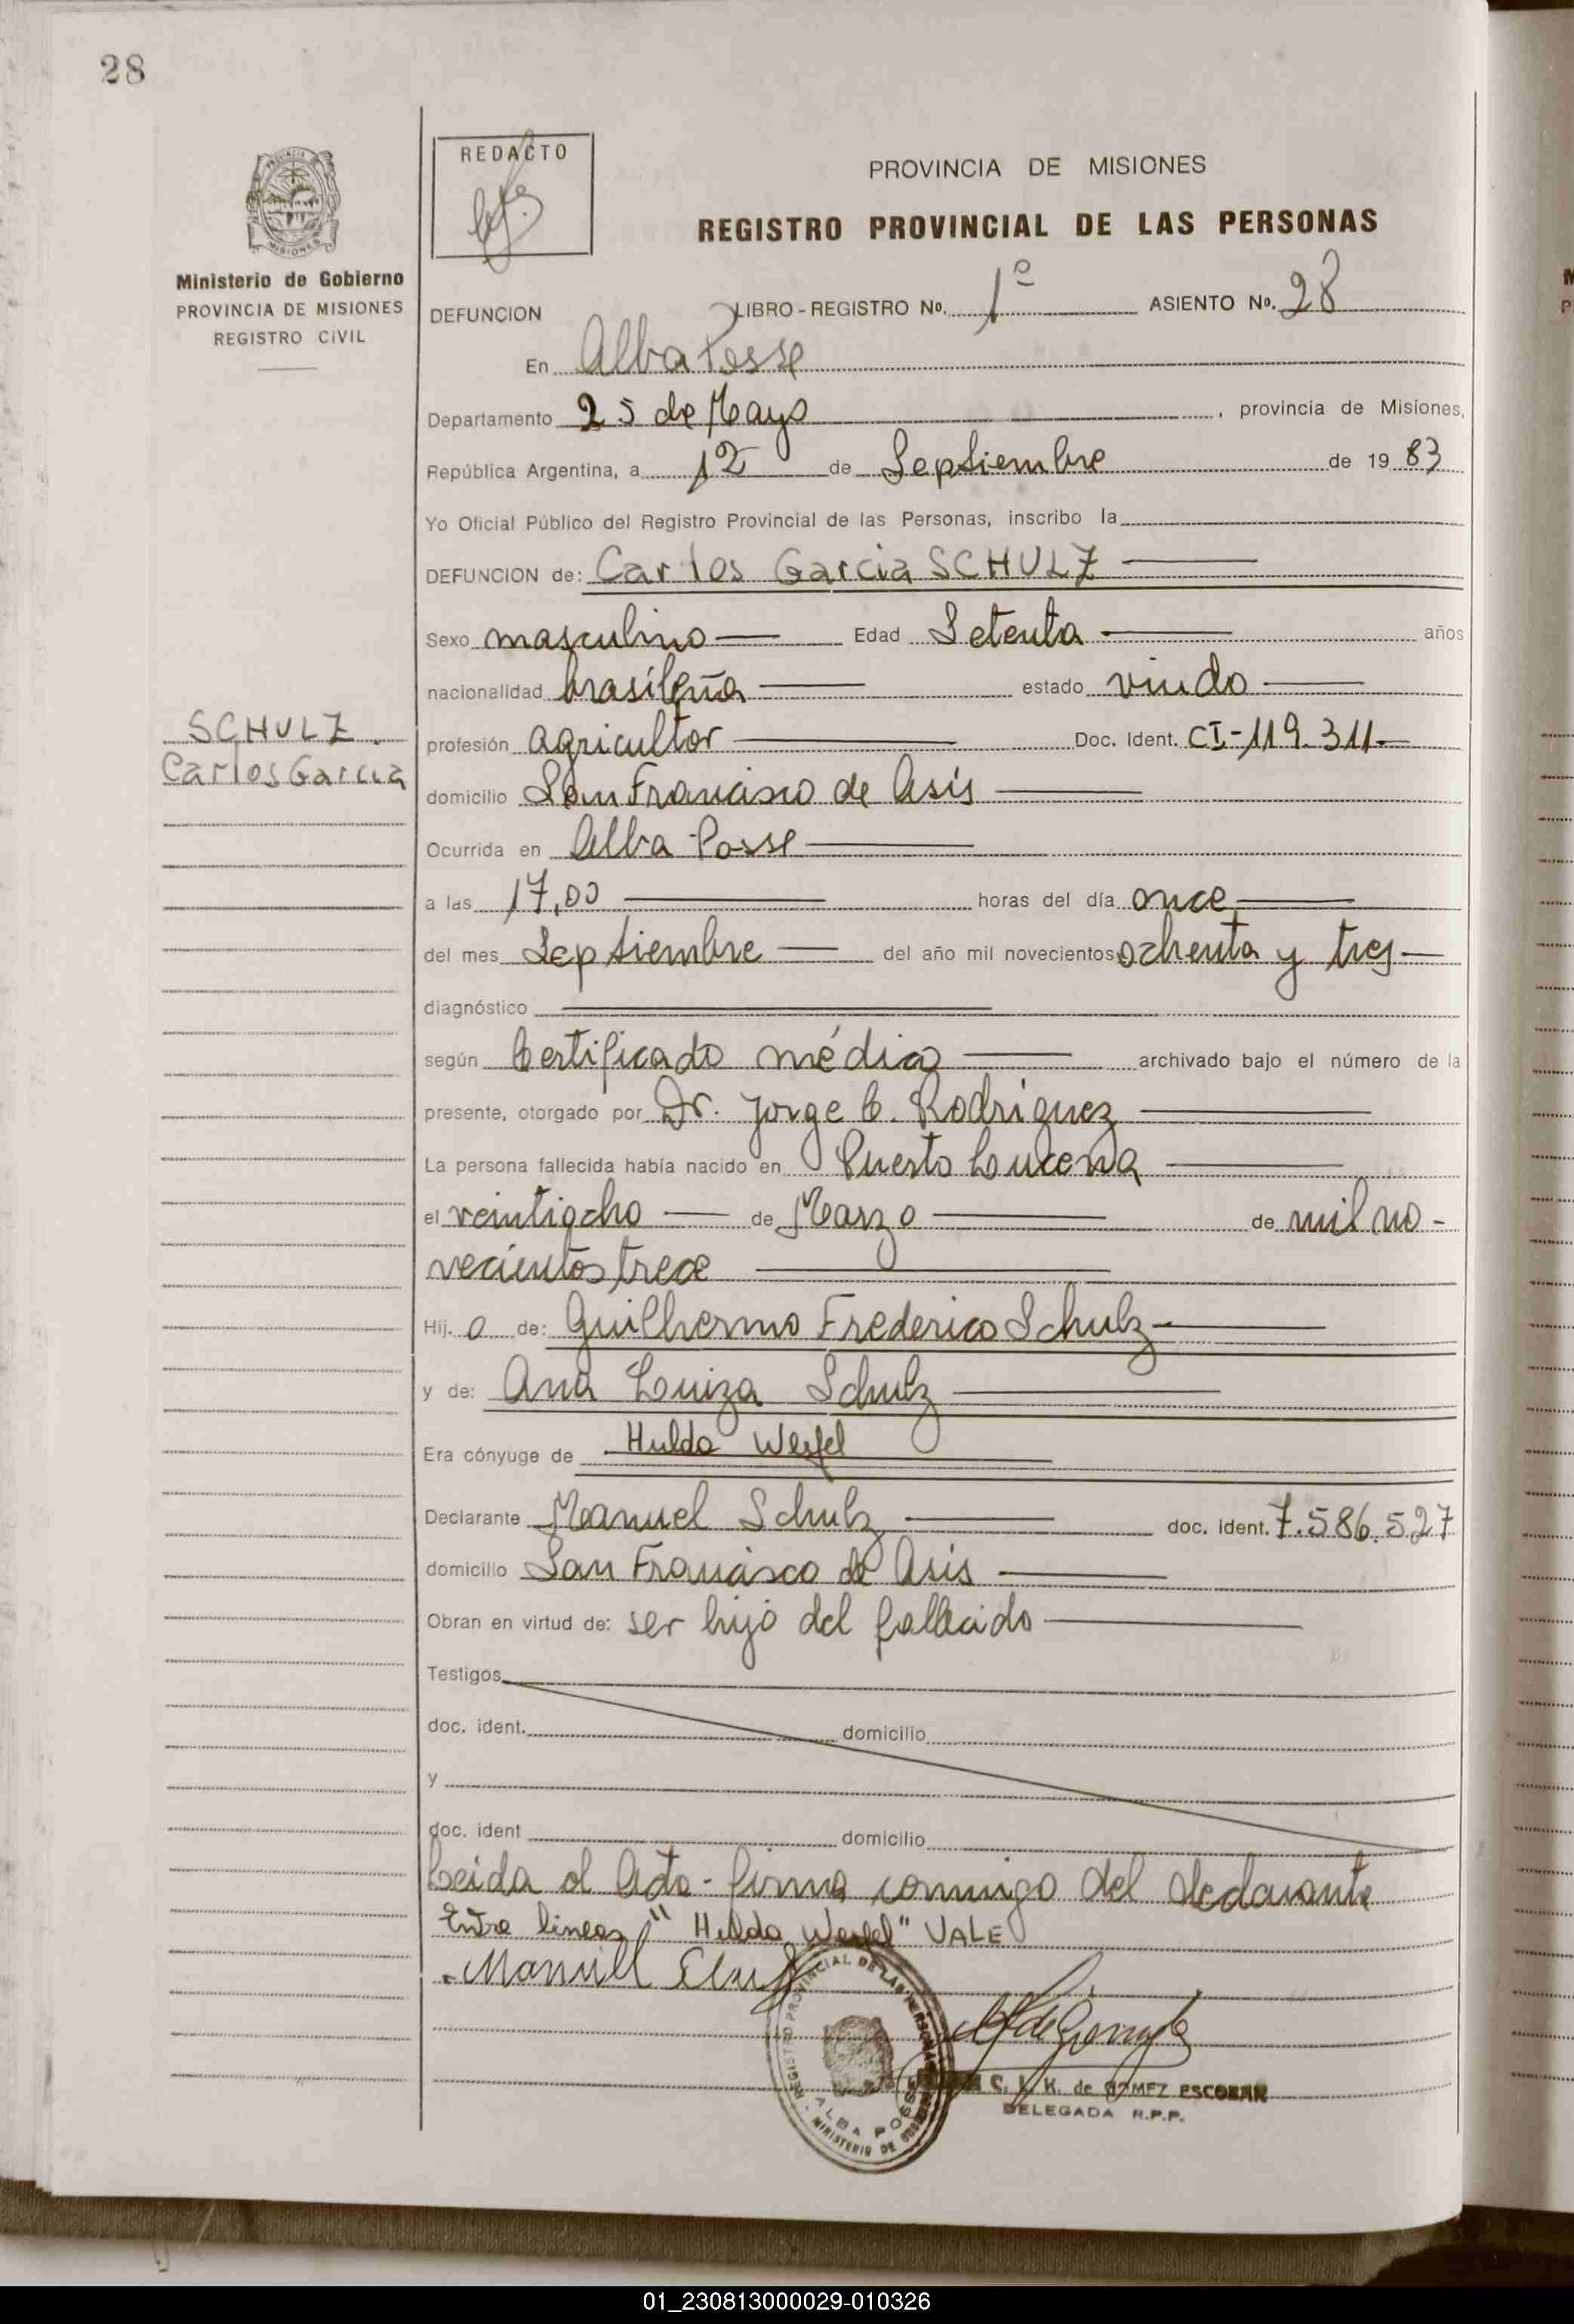 28
REDACTO
PROVINCIA DE MISIONES
REGISTRO PROVINCIAL DE LAS PERSONAS
Ministerio de Gobierno
PROVINCIA DE MISIONES
REGISTRO CIVIL
DEFUNCION LIBRO - REGISTRO No. 1º ASIENTO No. 28
En Alba Posse
Departamento 25 de Mayo, provincia de Misiones,
República Argentina, a 12 de Septiembre de 1983
Yo Oficial Público del Registro Provincial de las Personas, inscribo la
DEFUNCION de: Carlos Garcia SCHULZ
Sexo masculino Edad Setenta años
nacionalidad brasileña estado viudo
SCHULZ
Carlos Garcia
profesión agricultor Doc. Ident. CI-119.311-
domicilio San Francisco de Asís
Ocurrida en Alba Posse
a las 17,00 horas del día once
del mes Septiembre del año mil novecientos ochenta y tres
diagnóstico
según Certificado médico archivado bajo el número de la
presente, otorgado por Dr. Jorge C. Rodriguez
La persona fallecida había nacido en Puerto Lucena
el veintiocho de Marzo de mil no-
vecientos trece
Hij. o de: Guilhermo Frederico Schulz
y de: Ana Luiza Schulz
Era cónyuge de Hulda Wesfel
Declarante Manuel Schulz doc. ident. 7.586.527
domicilio San Francisco de Asis
Obran en virtud de: ser hijo del fallecido
Testigos
doc. ident. domicilio
y
doc. ident domicilio
Leida el Acta- firma conmigo del declarante
Entre lineas "Hulda Wesfel" VALE
Manuel
REGISTRO PROVINCIAL DE LAS PERSONAS
ALBA POSSE
MINISTERIO DE
C. L. K. de GOMEZ ESCOBAR
DELEGADA R.P.P.
01_230813000029-010326